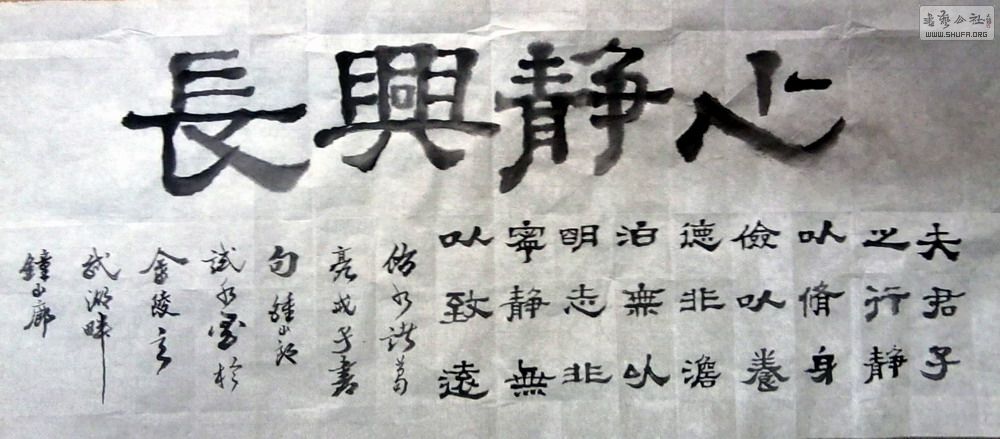 心静興長
夫君子
之行静
以脩身
儉以養
德非澹
泊無以
明志非
寧静無
以致遠
諸葛
亮戒子書
句
試水墨於
金陵玄
武湖畔
鐘山廊
書藝公社
WWW.SHUFA.ORG